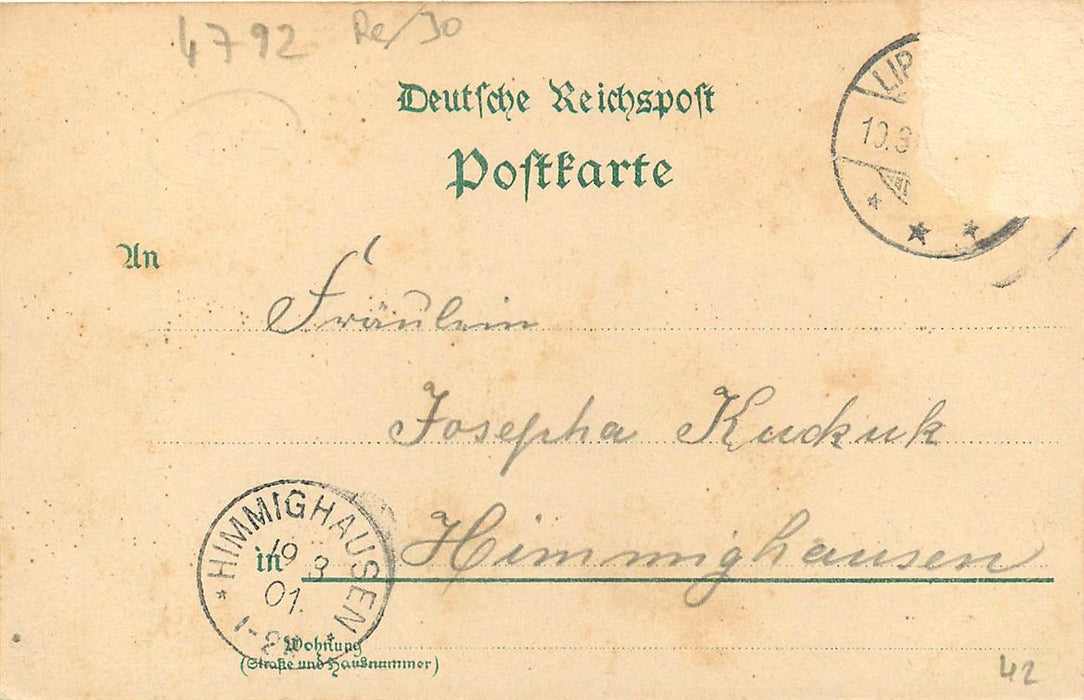 4792 Re/Jo
Deutsche Reichspost
Postkarte
LIP
10.3
An
Fräulein
Josepha Kuckuk
in Himmighausen
* HIMMIGHAUSEN *
19 3
01.
1-2N
Wohnung
(Straße und Hausnummer)
42